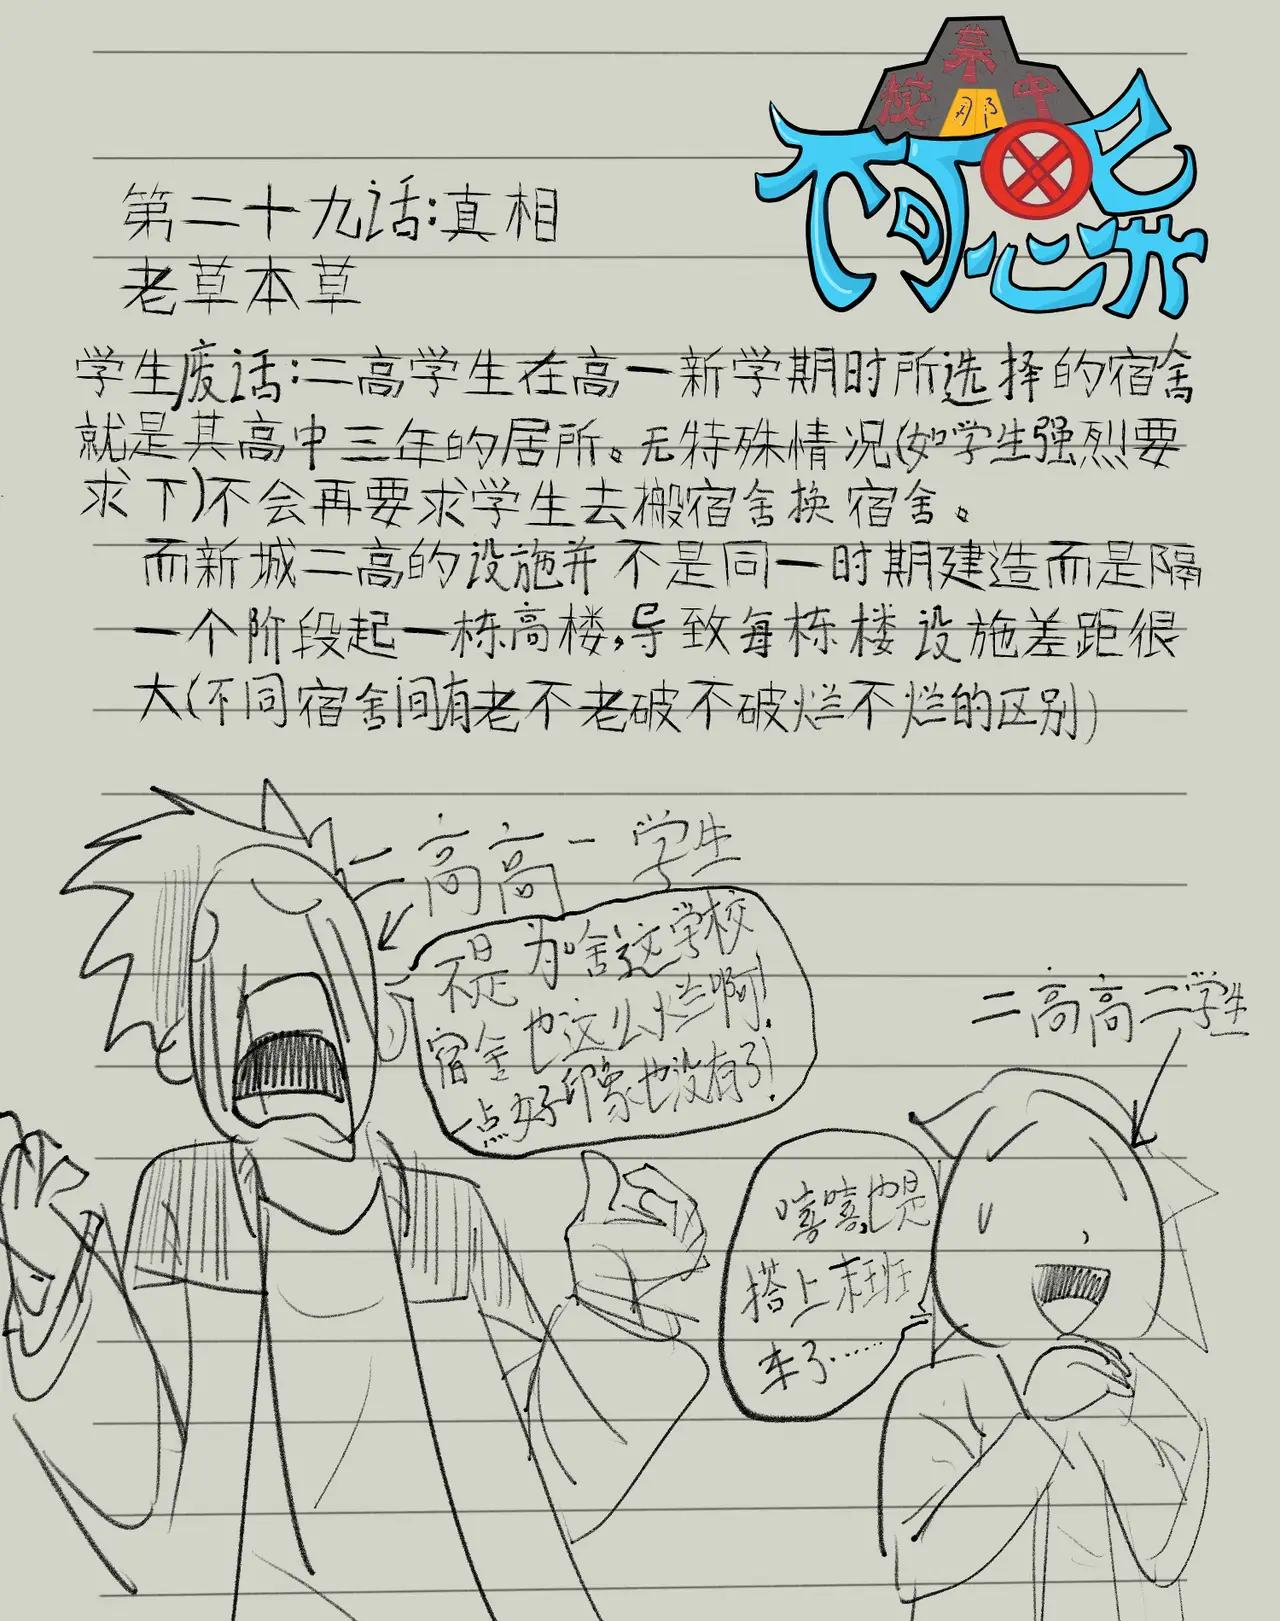 某
校 中
那
不可忌讳
第二十九话:真相
老草本草
学生废话:二高学生在高一新学期时所选择的宿舍
就是其高中三年的居所。无特殊情况(如学生强烈要
求下)不会再要求学生去搬宿舍换宿舍。
而新城二高的设施并不是同一时期建造而是隔
一个阶段起一栋高楼,导致每栋楼设施差距很
大(不同宿舍间有老不老破不破烂不烂的区别)
二高高一学生
不是为啥这学校
宿舍也这么烂啊!
一点好印象也没有了!
二高高二学生
嘻嘻,也是
搭上末班
车了……